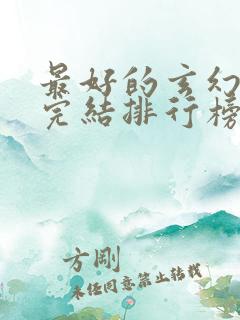 最好的玄幻
完結排行榜
方剛
未經同意禁止轉載